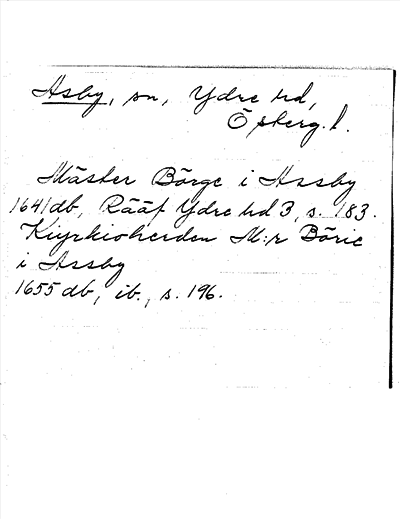 Asby, sn, Ydre hd,
Österg. l.
Mäster Börge i Assby
1641 db, Rääf Ydre hd 3, s. 183.
Kiyrkioherden M:r Böric
i Assby
1655 db, ib., s. 196.